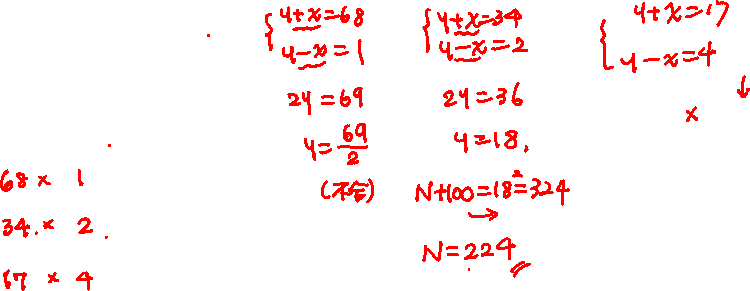 y+x=68
y-x=1
2y=69
y=69/2
(不合)
y+x=34
y-x=2
2y=36
y=18,
N+100=18²=324
→
N=224
y+x=17
y-x=4
↓
×
68 × 1
34 × 2
17 × 4